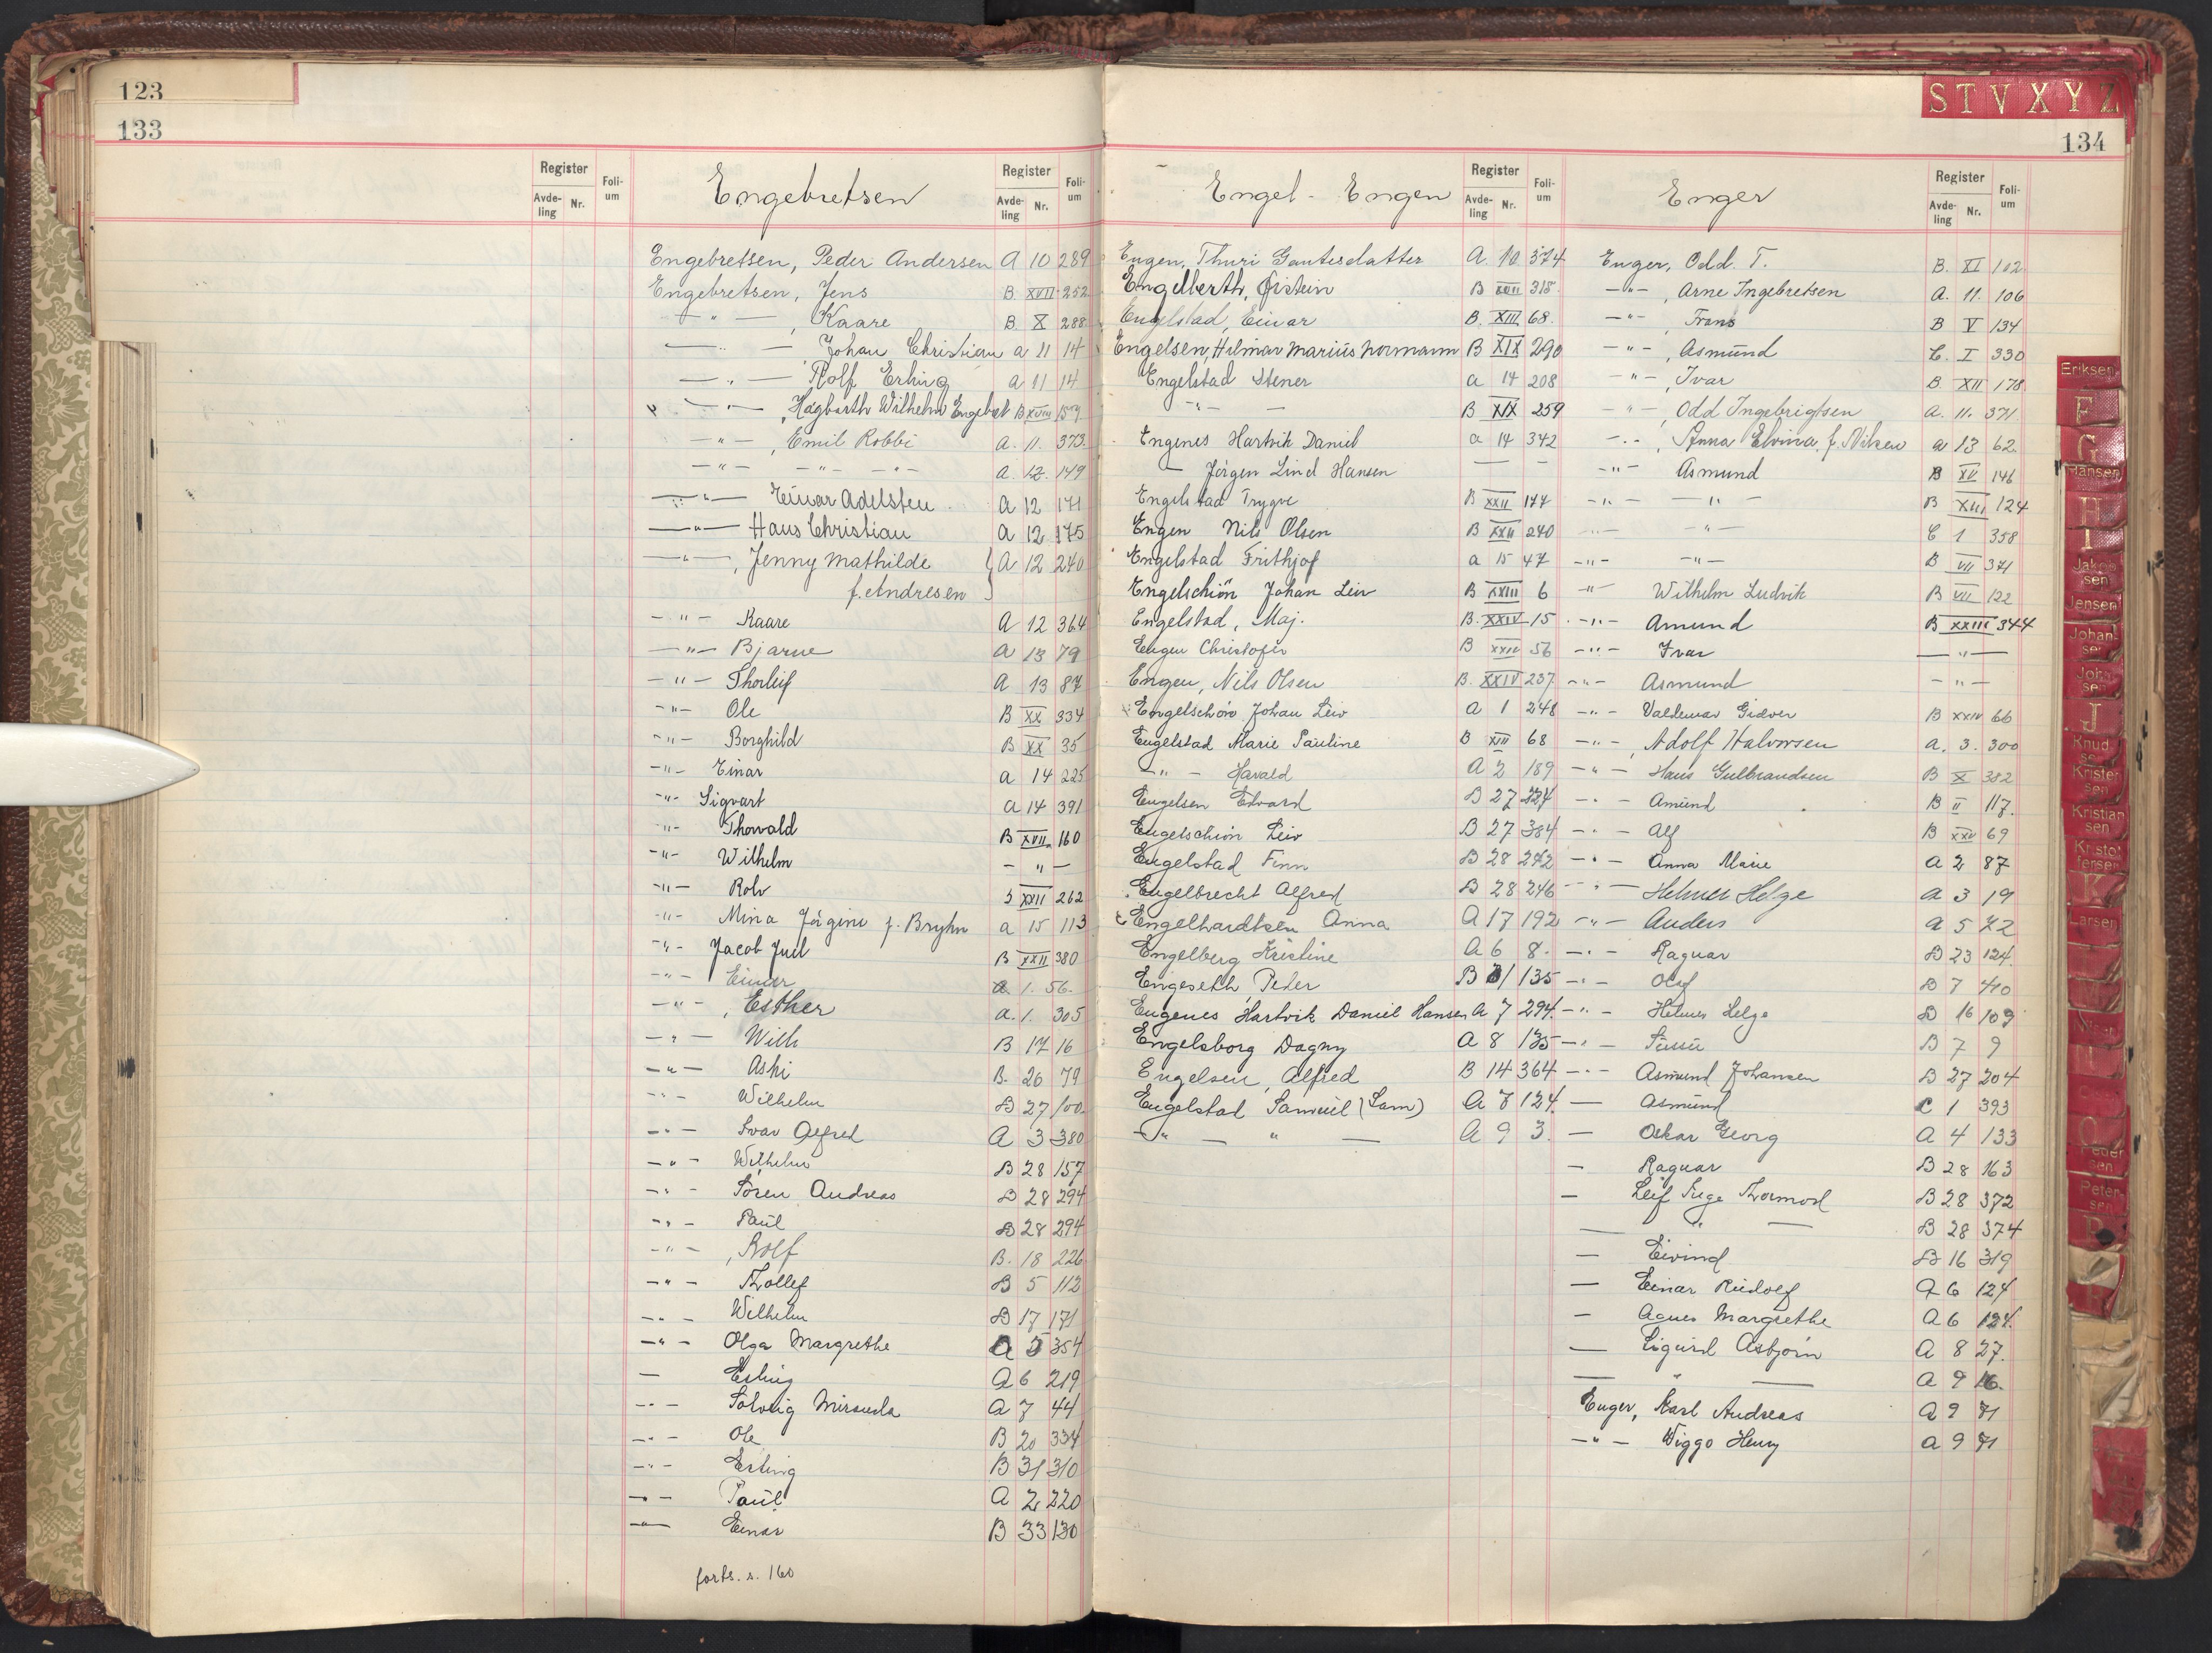 123
133
Register
Avde-ling Nr.
Foli-um
Engebretsen
Register
Avde-ling Nr.
Foli-um
Engebretsen, Peder Andersen A 10 289
Engebretsen, Jens B XVII 252
— " — , Kaare B X 288
— " — , Johan Christian a 11 14
— " — , Rolf Erling a 11 14
— " — , Hagbarth Wilhelm Engebret B XVIII 159
— " — , Emil Robbi A. 11. 373
— " — — " — — " — A. 12. 149
— " — Einar Adelsten A 12 171
— " — Hans Christian A 12 175
— " — , Jenny Mathilde A 12 240
f. Andresen
— " — Kaare A 12 364
— " — Bjarne A 13 79
— " — Thorleif A 13 87
— " — Ole B XX 334
— " — Borghild B XX 35
— " — Einar a 14 225
— " — Sigvart a 14 391
— " — Thorvald B XVII 160
— " — Wilhelm — " —
— " — Rolv B XXII 262
— " — Mina Jørgine f. Bryhn a 15 113
— " — Jacob Juel B XXII 380
— " — Einar a. 1. 56.
— " — , Esther a. 1. 305
— " — Wilh B 17 16
— " — Aski B. 26 79
— " — Wilhelm B 27 100
— " — Ivar Alfred A 3 380
— " — Wilhelm B 28 157
— " — Sören Andreas B 28 294
— " — Paul B 28 294
— " — , Rolf B. 18 226
— " — Thollef B 5 112
— " — Wilhelm B 17 171
— " — Olga Margrethe A 5 354
— Erling A 6 219
— " — Solveig Miranda A 7 44
— " — Ole B 20 334
— " — Erling B 31 310
— " — Paul A 2 220
— " — Einar B 33 130
forts. s. 160
STVXYZ
134
Engel - Engen
Register
Avde-ling Nr.
Foli-um
Engen, Thuri Gautesdatter A. 10 374
Engelberth, Øistein B XVII 318
Engelstad, Einar B. XIII 68.
Engelsen, Hilmar Marius Normann B XIX 290
Engelstad Stener a 14 208
— " — — B XIX 259
Engenes Hartvik Daniel a 14 342
— Jörgen Lind Hansen — —
Engelstad Trygve B XXII 177
Engen Nils Olsen B XXII 240
Engelstad Frithjof a 15 47
Engelschiön Johan Leiv B XXIII 6
Engelstad, Maj. B. XXIV 15
Engen Christofer B XXIV 56
Engen, Nils Olsen B. XXIV 237
Engelschøn Johan Leiv a 1 248
Engelstad Marie Pauline B XIII 68
— " — Harald A 2 189
Engelsen Edvard B 27 324
Engelschiön Leiv B 27 384
Engelstad Finn B 28 242
Engelbrecht Alfred B 28 246
Engelhardtsen Anna A 17 192
Engelberg Kristine A 6 8.
Engeseth Peter B 31 135
Engenes Hartvik Daniel Hansen A 7 294
Engelsborg Dagny A 8 135
Engelsen, Alfred B 14 364
Engelstad Samuel (Sam) A 7 124
— " — " — A 9 3.
Enger
Register
Avde-ling Nr.
Foli-um
Enger, Odd. T. B. XI 102
— " — , Arne Ingebretsen A. 11. 106
— " — , Frans B V 134
— " — , Asmund C. I 330
— " — , Ivar B XII 178
— " — , Odd Ingebrigtsen A. 11. 371
— " — , Anna Elvina, f. Nilsen a 13 62.
— " — Asmund B XV 146
— " — — " — B XIII 124
— " — — " — C 1 358
— " — — " — B VII 371
— " — Wilhelm Ludvik B VII 122
— " — Amund B XXIII 344
— " — Ivar — " —
— " — Asmund — " —
— " — Valdemar Gidver B XXIV 66
— " — , Adolf Halvorsen A. 3. 300
— " — Hans Gulbrandsen B X 382
— " — Amund B II 117.
— " — Alf B XXV 69
— " — Anna Marie A 2 87
— " — Helmer Helge A 3 19
— " — Anders A 5 72
— " — Ragnar B 23 124.
— " — Olaf B 7 410
— " — Helmer Helge B 16 109
— " — B 7 9
— " — Asmund Johansen B 27 204
— Asmund C 1 393
— Oskar Georg A 4 133
— Ragnar B 28 163
— Leif Inge Thormod B 28 372
— " — B 28 374
— Eivind B 16 319
— Einar Rudolf A 6 124
— Agnes Margrethe A 6 124.
— Sigurd Asbjørn A 8 27.
— " — A 9 16.
Enger, Karl Andreas A 9 71
— " — Wiggo Henry A 9 71
Eriksen
F
G
Hansen
H
I
Jakobsen
Jensen
Johansen
Johnsen
J
Knudsen
Kristensen
Kristiansen
Kristoffersen
K
Larsen
Nilsen
O
Pedersen
Petersen
P